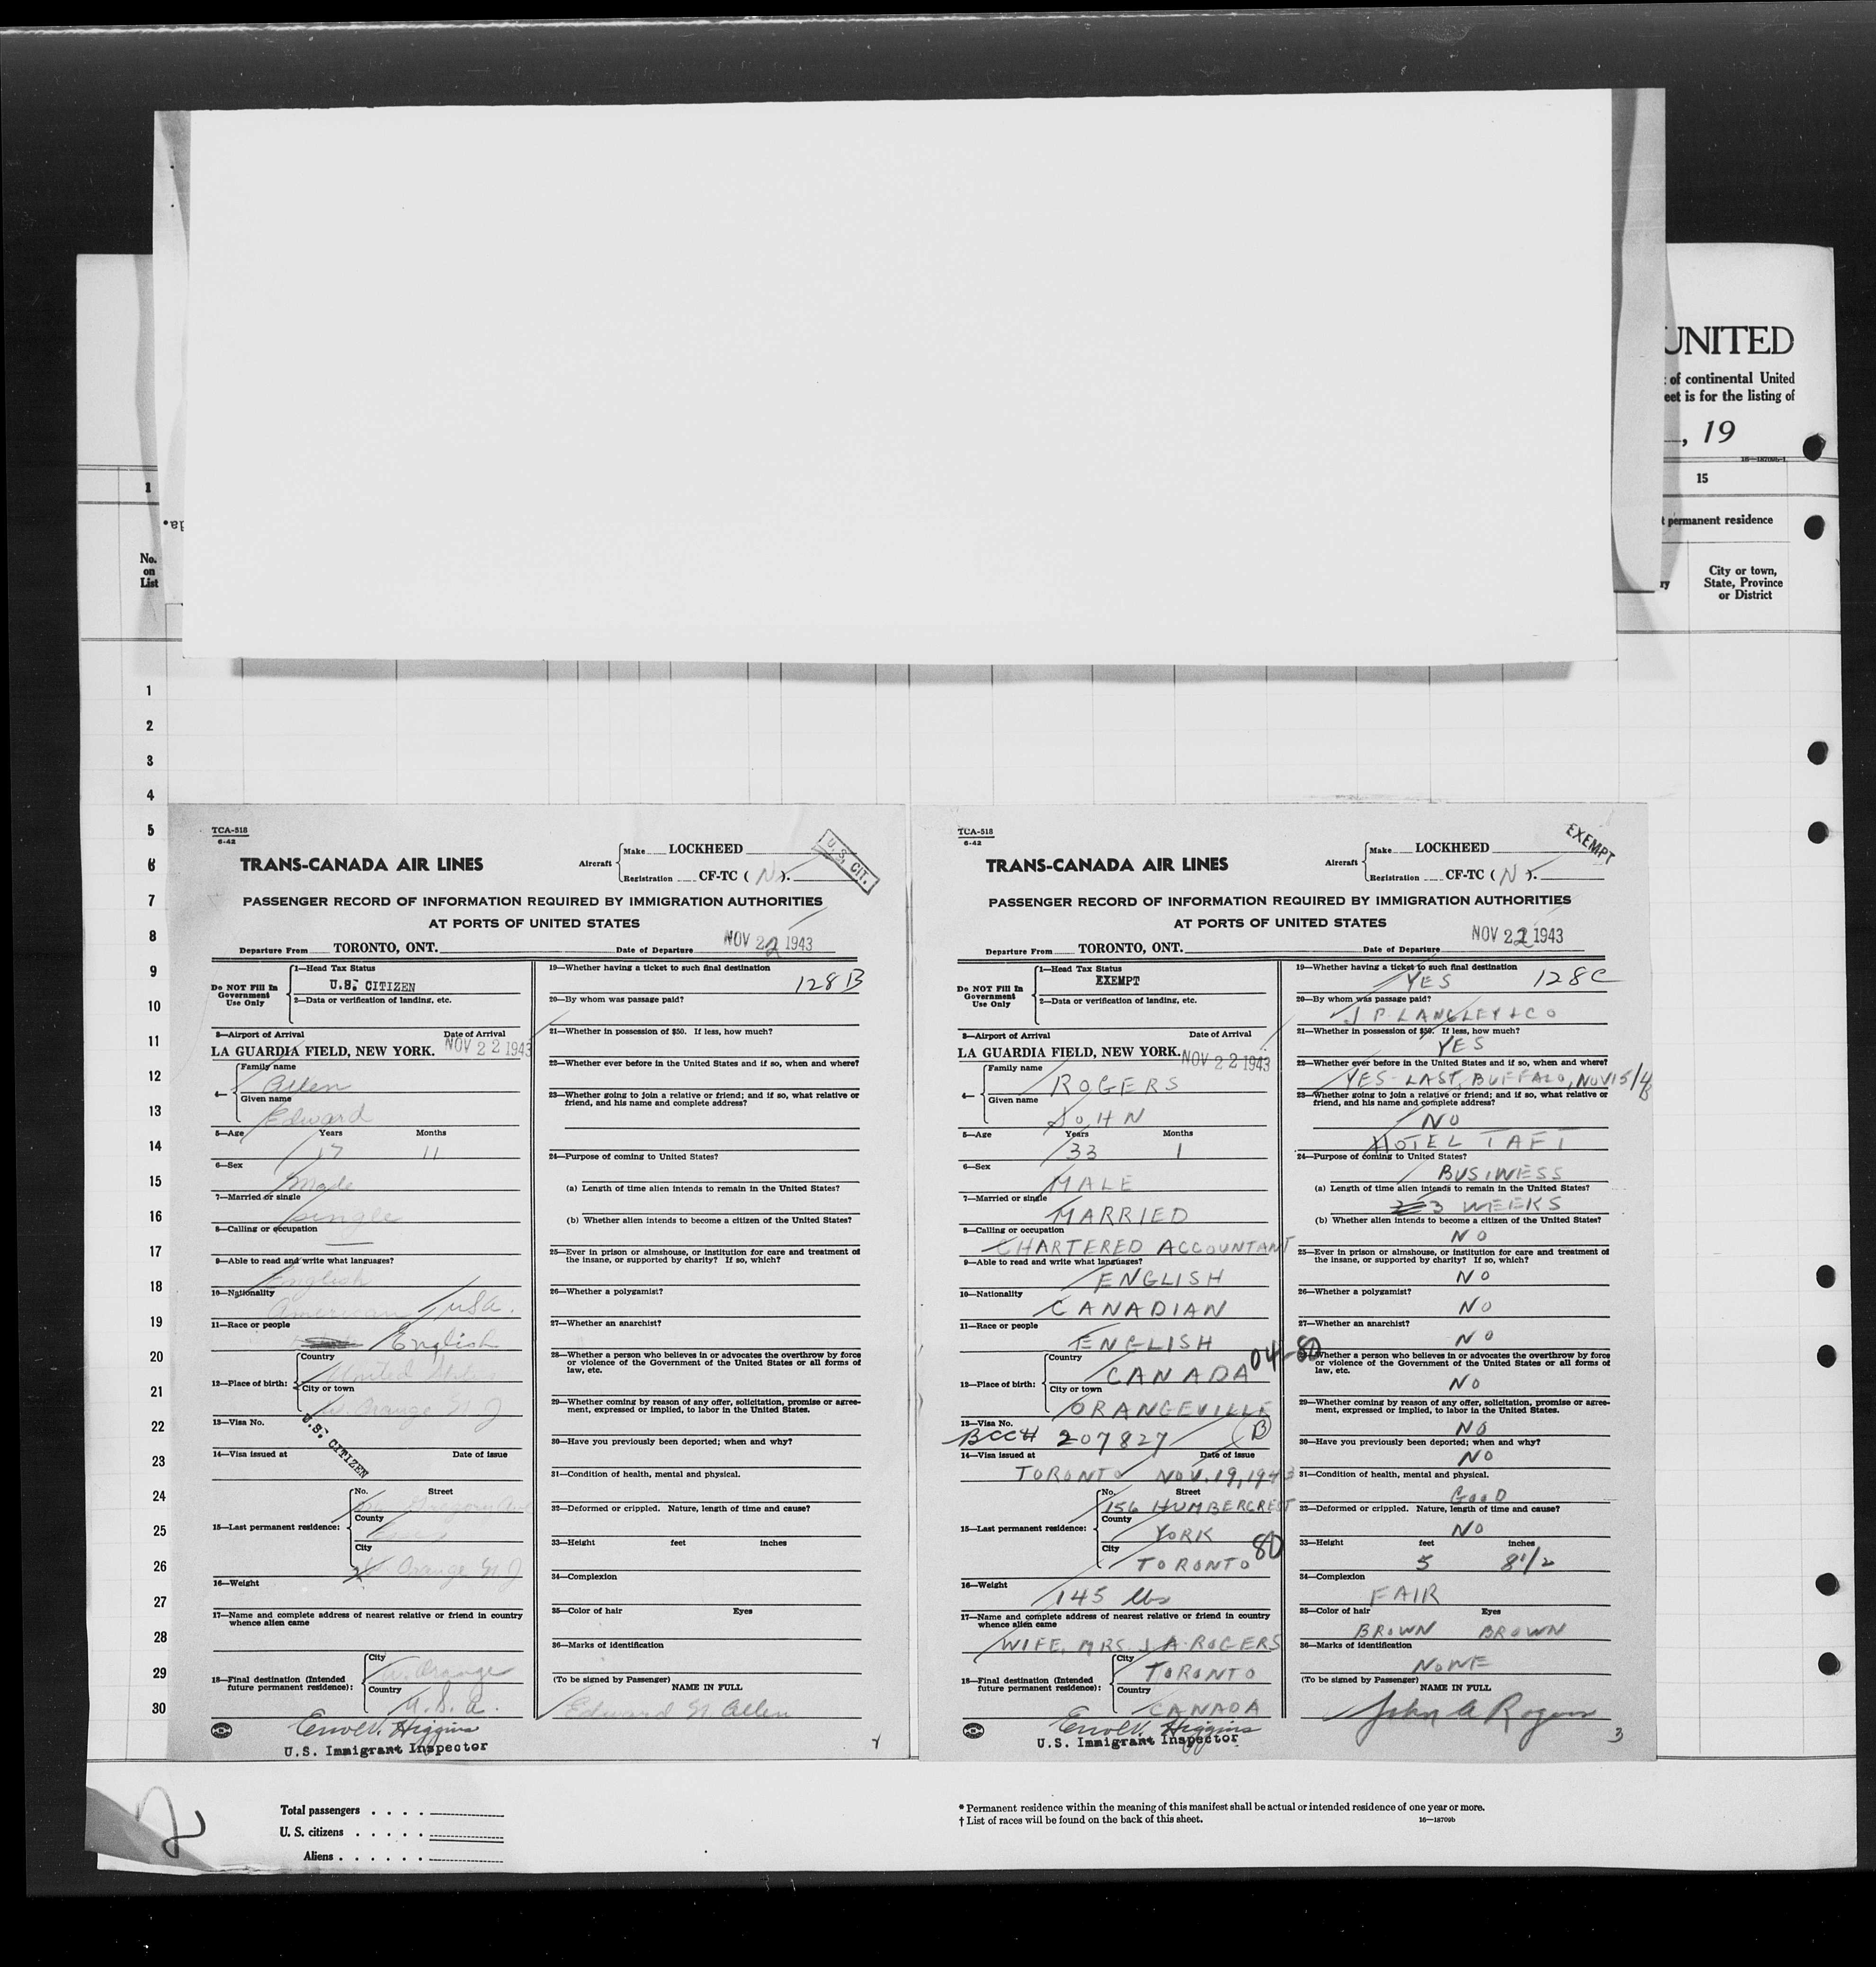 UNITED
of continental United
eet is for the listing of
, 19
16—18709b-1
1
15
permanent residence
No.
on
List
City or town,
State, Province
or District
1
2
3
4
5
6
7
8
9
10
11
12
13
14
15
16
17
18
19
20
21
22
23
24
25
26
27
28
29
30
TCA-518
6-42
TRANS-CANADA AIR LINES
Aircraft
Make LOCKHEED
Registration CF-TC ( N ).
U.S. CIT.
PASSENGER RECORD OF INFORMATION REQUIRED BY IMMIGRATION AUTHORITIES
AT PORTS OF UNITED STATES
Departure From TORONTO, ONT. Date of Departure NOV 22 1943
Do NOT Fill In
Government
Use Only
1—Head Tax Status
U.S. CITIZEN
2—Data or verification of landing, etc.
3—Airport of Arrival Date of Arrival
LA GUARDIA FIELD, NEW YORK. NOV 22 1943
4—
Family name
Allen
Given name
Edward
5—Age Years Months
17 11
6—Sex
Male
7—Married or single
single
8—Calling or occupation
—
9—Able to read and write what languages?
English
10—Nationality
American USA.
11—Race or people
English
12—Place of birth:
Country
United States
City or town
W. Orange N J
13—Visa No.
U.S. CITIZEN
14—Visa issued at Date of issue
15—Last permanent residence:
No. Street
Gregory Ave
County
Essex
City
W Orange N J
16—Weight
17—Name and complete address of nearest relative or friend in country
whence alien came
18—Final destination (Intended
future permanent residence):
City
W. Orange
Country
U. S. A.
Errol V. Higgins
U.S. Immigrant Inspector
19—Whether having a ticket to such final destination
128B
20—By whom was passage paid?
21—Whether in possession of $50. If less, how much?
22—Whether ever before in the United States and if so, when and where?
23—Whether going to join a relative or friend; and if so, what relative or
friend, and his name and complete address?
24—Purpose of coming to United States?
(a) Length of time alien intends to remain in the United States?
(b) Whether alien intends to become a citizen of the United States?
25—Ever in prison or almshouse, or institution for care and treatment of
the insane, or supported by charity? If so, which?
26—Whether a polygamist?
27—Whether an anarchist?
28—Whether a person who believes in or advocates the overthrow by force
or violence of the Government of the United States or all forms of
law, etc.
29—Whether coming by reason of any offer, solicitation, promise or agree-
ment, expressed or implied, to labor in the United States.
30—Have you previously been deported; when and why?
31—Condition of health, mental and physical.
32—Deformed or crippled. Nature, length of time and cause?
33—Height feet inches
34—Complexion
35—Color of hair Eyes
36—Marks of identification
(To be signed by Passenger)
NAME IN FULL
Edward N Allen
TCA-518
6-42
TRANS-CANADA AIR LINES
Aircraft
Make LOCKHEED
Registration CF-TC ( N ).
EXEMPT
PASSENGER RECORD OF INFORMATION REQUIRED BY IMMIGRATION AUTHORITIES
AT PORTS OF UNITED STATES
Departure From TORONTO, ONT. Date of Departure NOV 22 1943
Do NOT Fill In
Government
Use Only
1—Head Tax Status
EXEMPT
2—Data or verification of landing, etc.
3—Airport of Arrival Date of Arrival
LA GUARDIA FIELD, NEW YORK. NOV 22 1943
4—
Family name
ROGERS
Given name
JOHN
5—Age Years Months
33 1
6—Sex
MALE
7—Married or single
MARRIED
8—Calling or occupation
CHARTERED ACCOUNTANT
9—Able to read and write what languages?
ENGLISH
10—Nationality
CANADIAN
11—Race or people
ENGLISH
12—Place of birth:
Country
CANADA 04-80
City or town
ORANGEVILLE
13—Visa No.
BCC# 207827 (B)
14—Visa issued at Date of issue
TORONTO NOV. 19, 1943
15—Last permanent residence:
No. Street
156 HUMBERCREST
County
YORK
City
TORONTO 80
16—Weight
145 lbs
17—Name and complete address of nearest relative or friend in country
whence alien came
WIFE, MRS. J. A. ROGERS
18—Final destination (Intended
future permanent residence):
City
TORONTO
Country
CANADA
Errol V. Higgins
U.S. Immigrant Inspector
19—Whether having a ticket to such final destination
YES 128C
20—By whom was passage paid?
J P. LANGLEY & CO
21—Whether in possession of $50. If less, how much?
YES
22—Whether ever before in the United States and if so, when and where?
YES - LAST, BUFFALO, NOV 15/43
23—Whether going to join a relative or friend; and if so, what relative or
friend, and his name and complete address?
NO
HOTEL TAFT
24—Purpose of coming to United States?
BUSINESS
(a) Length of time alien intends to remain in the United States?
3 WEEKS
(b) Whether alien intends to become a citizen of the United States?
NO
25—Ever in prison or almshouse, or institution for care and treatment of
the insane, or supported by charity? If so, which?
NO
26—Whether a polygamist?
NO
27—Whether an anarchist?
NO
28—Whether a person who believes in or advocates the overthrow by force
or violence of the Government of the United States or all forms of
law, etc.
NO
29—Whether coming by reason of any offer, solicitation, promise or agree-
ment, expressed or implied, to labor in the United States.
NO
30—Have you previously been deported; when and why?
NO
31—Condition of health, mental and physical.
GOOD
32—Deformed or crippled. Nature, length of time and cause?
NO
33—Height feet inches
5 8 1/2
34—Complexion
FAIR
35—Color of hair Eyes
BROWN BROWN
36—Marks of identification
NONE
(To be signed by Passenger)
NAME IN FULL
John A Rogers
3
2
Total passengers . . . .
U. S. citizens . . . . .
Aliens . . . . . .
* Permanent residence within the meaning of this manifest shall be actual or intended residence of one year or more.
† List of races will be found on the back of this sheet.
16—18709b